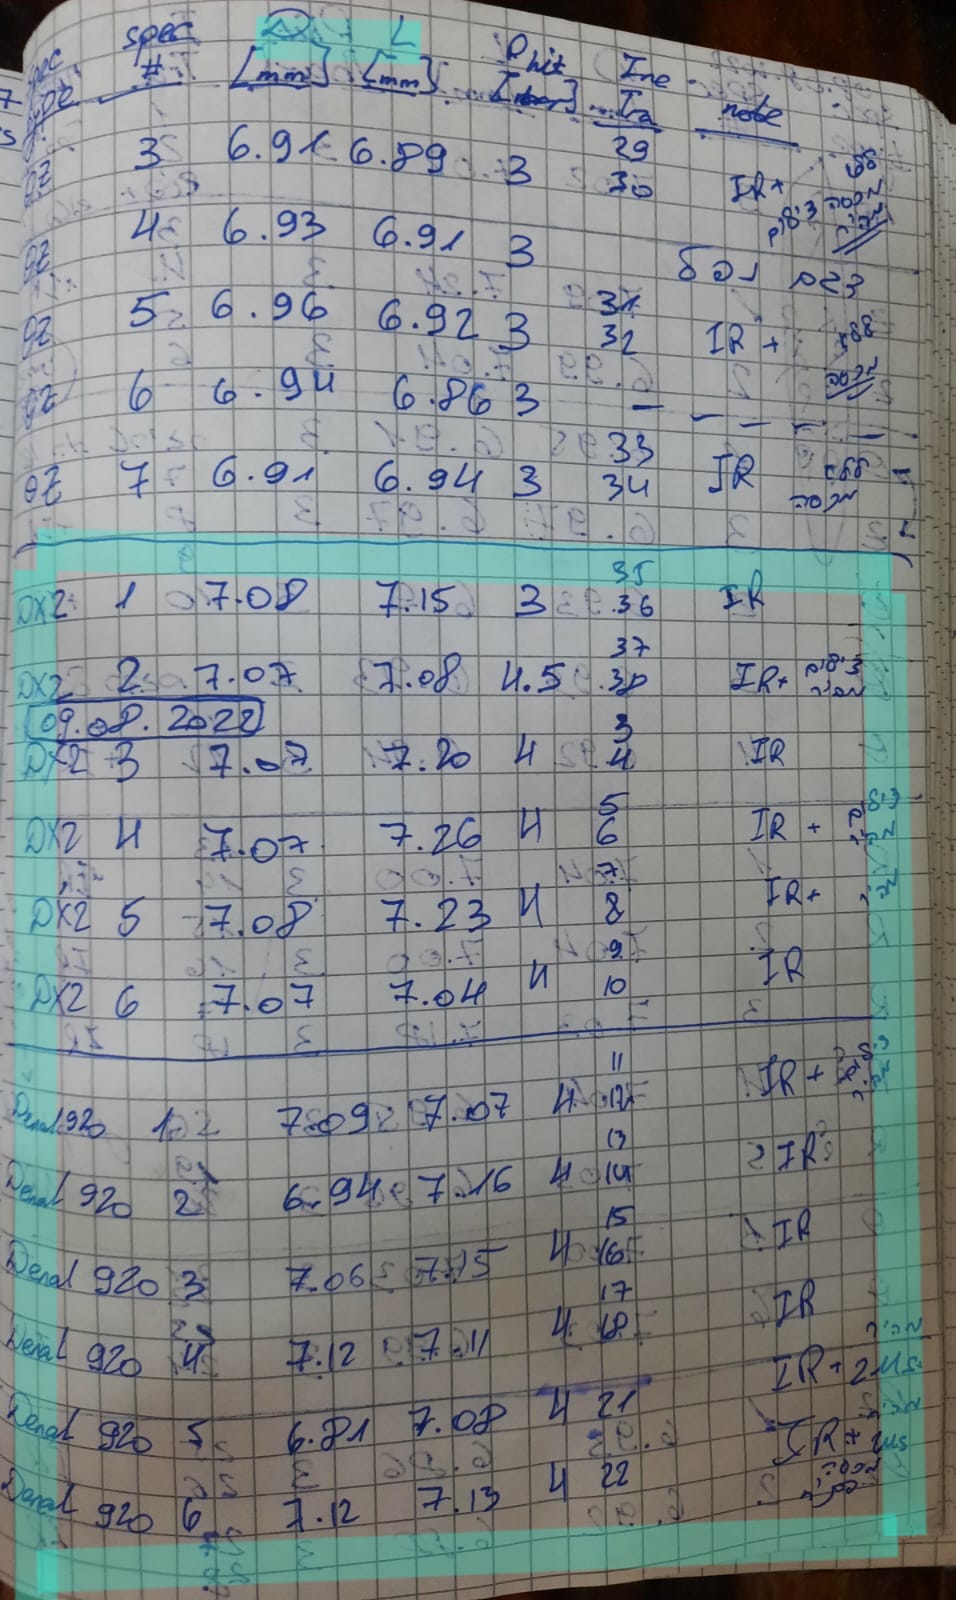 spec spec # D [mm] L [mm] P hit Ine Tra note
3 6.91 6.89 3 29 30 IR+
4 6.93 6.91 3
5 6.96 6.92 3 31 32 IR +
6 6.94 6.86 3 –
7 6.91 6.94 3 33 34 IR
DX2 1 7.08 7.15 3 35 36 IR
DX2 2 7.07 7.08 4.5 37 38 IR+
09.08.2022
DX2 3 7.07 7.20 4 3 4 IR
DX2 4 7.07 7.26 4 5 6 IR +
DX2 5 7.08 7.23 4 7 8 IR+
DX2 6 7.07 7.04 4 9 10 IR
Denal 920 1 7.09 7.07 4 11 12 IR +
Denal 920 2 6.94 7.16 4 13 14 IR
Denal 920 3 7.06 7.15 4 15 16 IR
Denal 920 4 7.12 7.11 4 17 18 IR
Denal 920 5 6.81 7.08 4 21 IR+2μs
Denal 920 6 7.12 7.13 4 22 IR+2μs